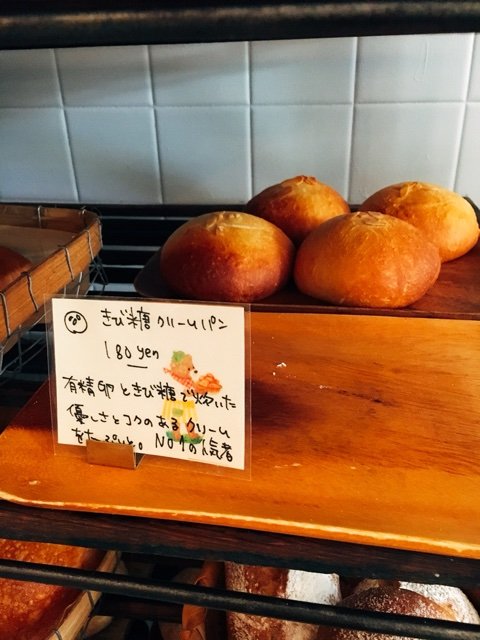 きび糖クリームパン
180yen
有精卵ときび糖で炊いた
優しさとコクのあるクリーム
をたーぷりと。No1の人気者